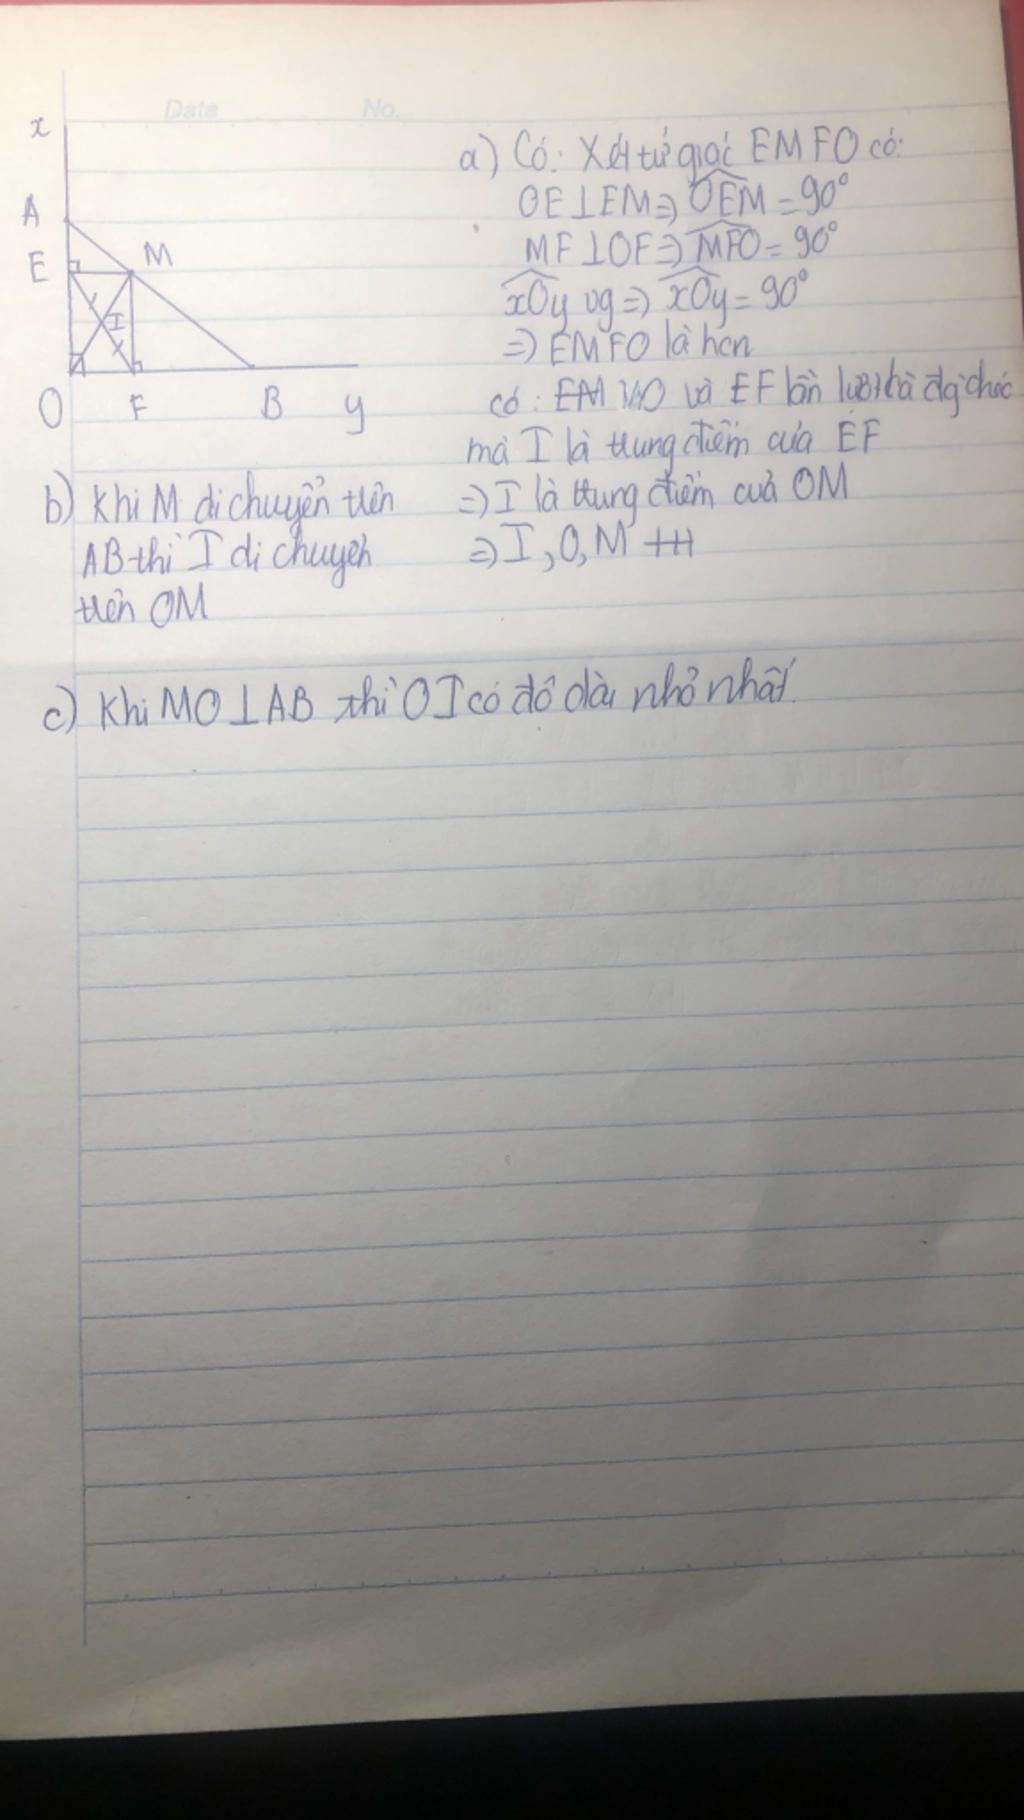 Date No.
x
A
E
M
I
O F B y
a) Có: Xét tứ giác EMFO có:
OE⊥EM⇒ OEM = 90°
MF⊥OF⇒ MFO = 90°
xOy vg⇒ xOy = 90°
⇒ EMFO là hcn
có: MO và EF lần lượt là đg chéo
mà I là trung điểm của EF
⇒ I là trung điểm cuả OM
⇒ I, O, M tH
b) Khi M di chuyển trên
AB thì I di chuyển
trên OM
c) Khi MO⊥AB thì OI có độ dài nhỏ nhất.